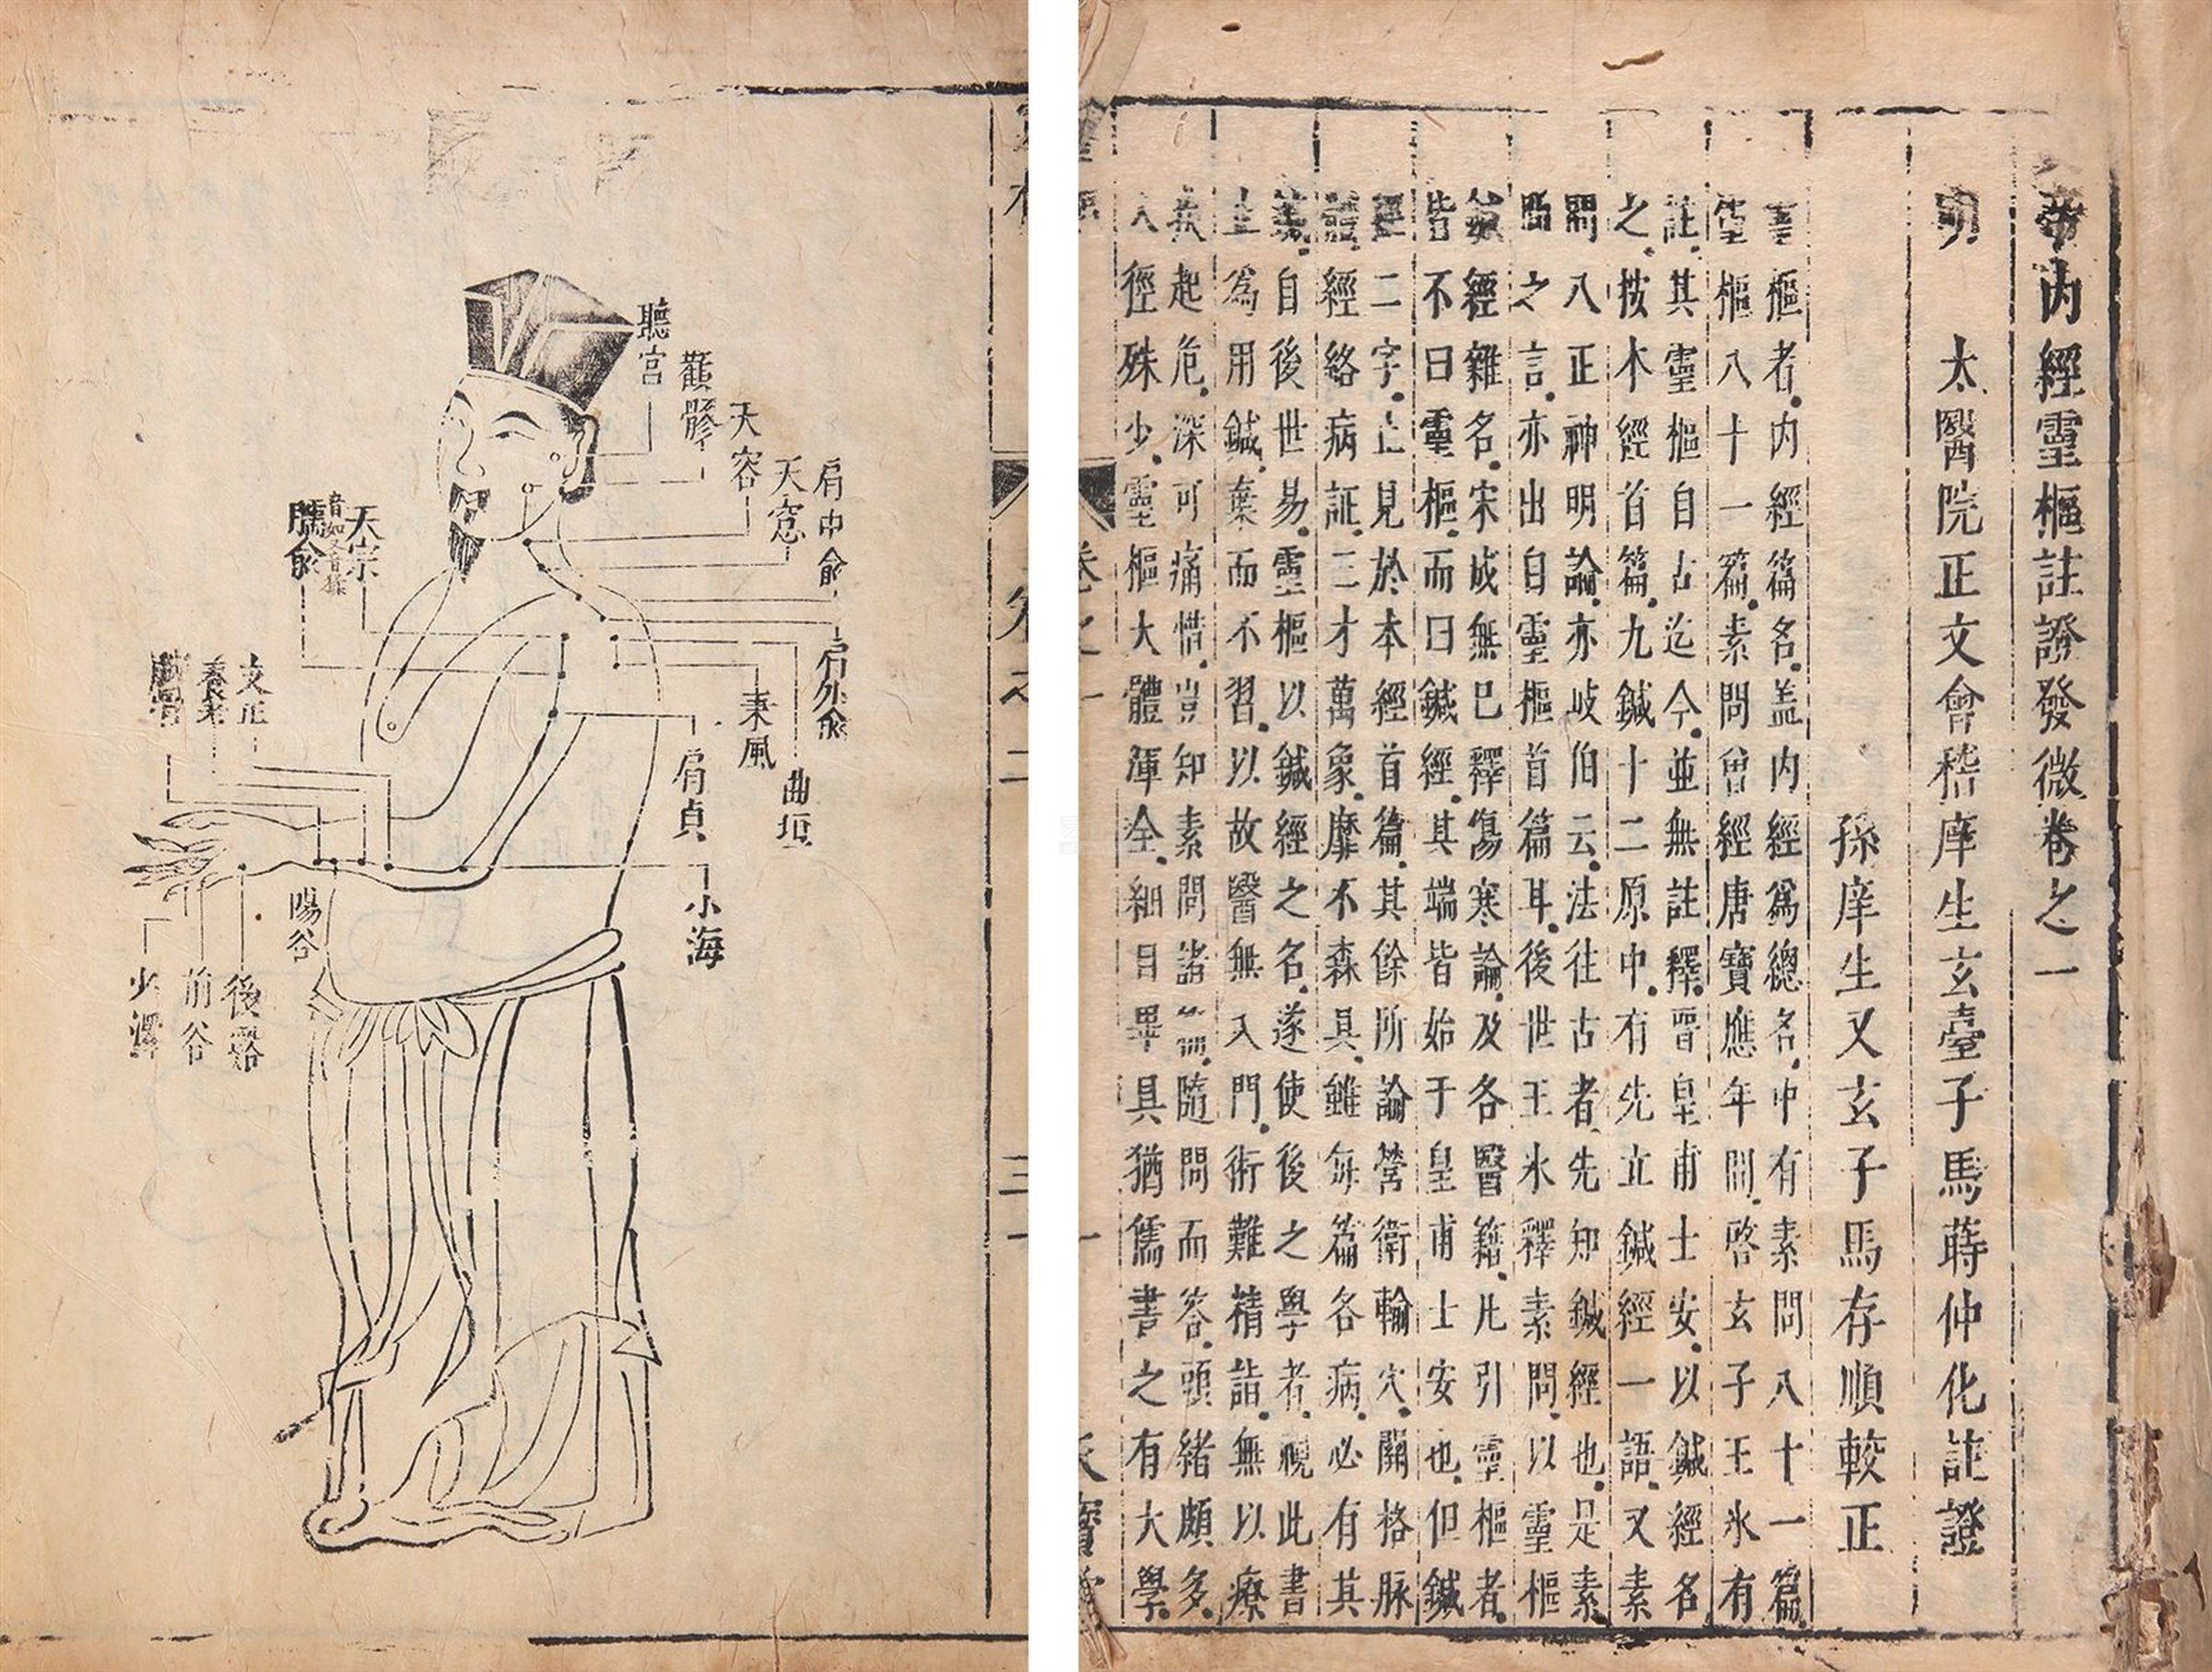 帝內經靈樞註證發微卷之一
明 太醫院正文會稽庠生玄臺子馬蒔仲化註證
孫庠生又玄子馬存順較正
靈樞者內經篇名蓋內經爲總名中有素問八十一篇
靈樞八十一篇素問曾經唐寶應年間啓玄子王氷有
註其靈樞自古迄今並無註釋晉皇甫士安以鍼經名
之按本經首篇九鍼十二原中有先立鍼經一語又素
問八正神明論亦岐伯云法往古者先知鍼經也是素
問之言亦出自靈樞首篇耳後世王氷釋素問以靈樞
鍼經雜名宋成無巳釋傷寒論及各醫籍凡引靈樞者
皆不曰靈樞而曰鍼經其端皆始于皇甫士安也但鍼
經二字止見於本經首篇其餘所論營衛輸穴關格脉
體經絡病証三才萬象靡不森具雖每篇各病必有其
鍼自後世易靈樞以鍼經之名遂使後之學者視此書
止爲用鍼棄而不習以故醫無入門術難精詣無以療
疾起危深可痛惜豈知素問諸篇隨問而答頭緒頗多
入徑殊少靈樞大體渾全細目畢具猶儒書之有大學
卷之一
一
卷之二
三十一
肩中俞
肩外俞
天窓
曲垣
天容
秉風
顴髎
肩貞
小海
聽宮
天宗
臑俞
支正
養老
腕骨
陽谷
後谿
前谷
少澤